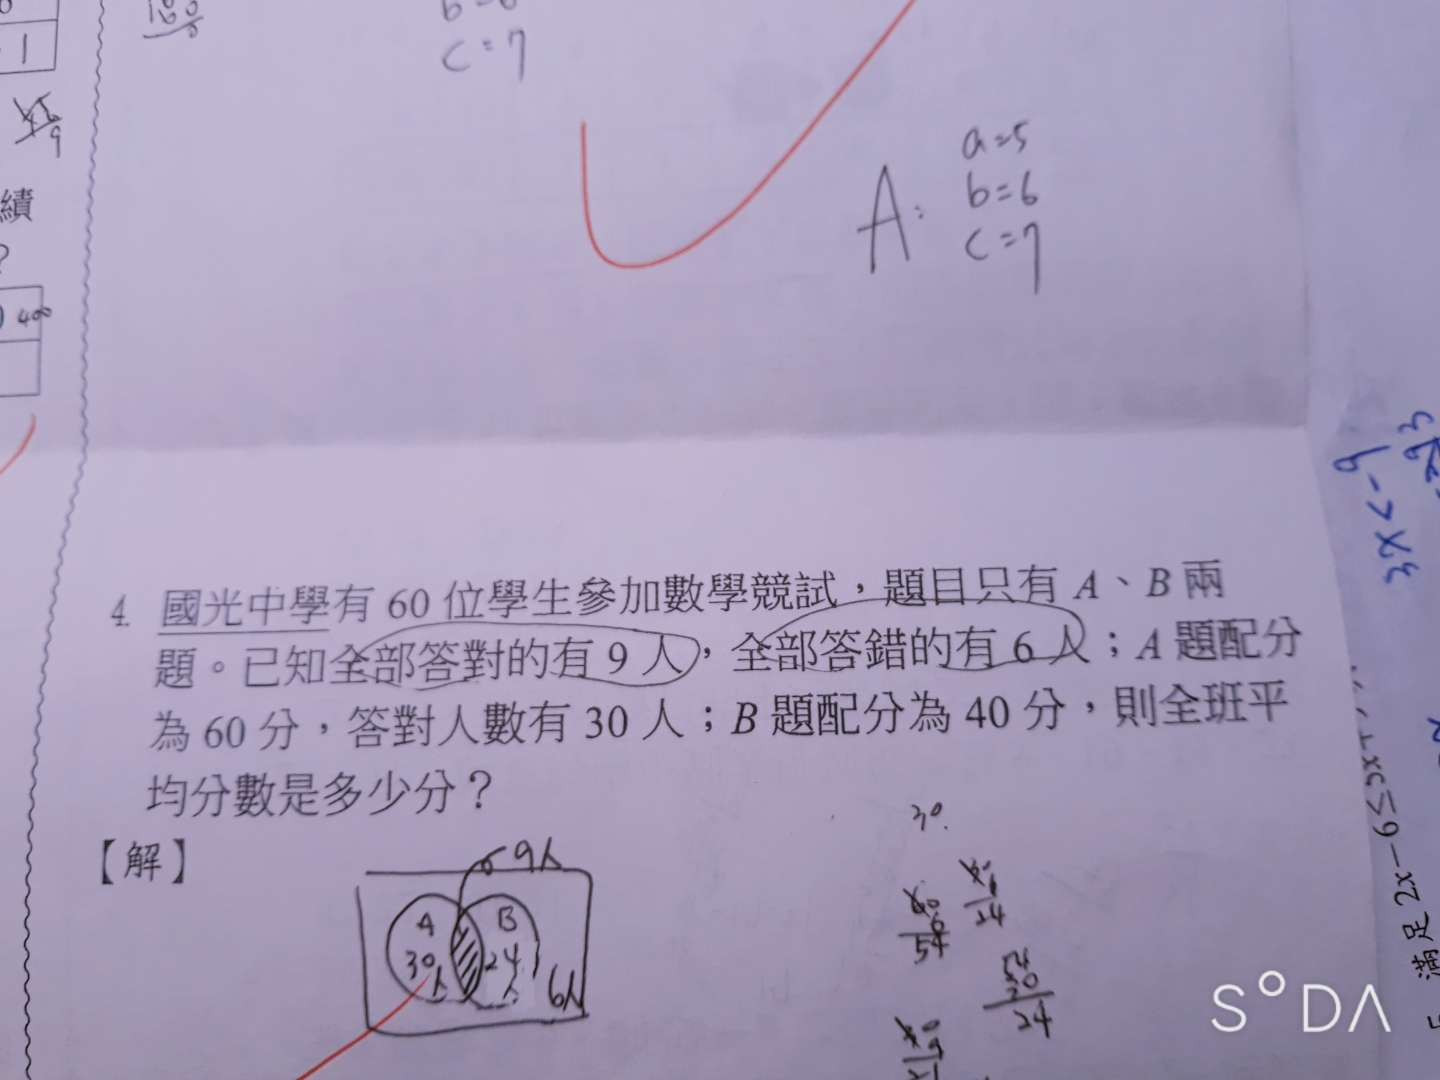 1
9
績
?
400
c=7
A:
a=5
b=6
c=7
3x<-9
4. 國光中學有 60 位學生參加數學競試，題目只有 A、B 兩
題。已知全部答對的有 9 人，全部答錯的有 6 人；A 題配分
為 60 分，答對人數有 30 人；B 題配分為 40 分，則全班平
均分數是多少分？
【解】
9人
A
B
30人
24人
6人
30.
24
54
54
30
24
滿足 2x－6≤5x+
SODA